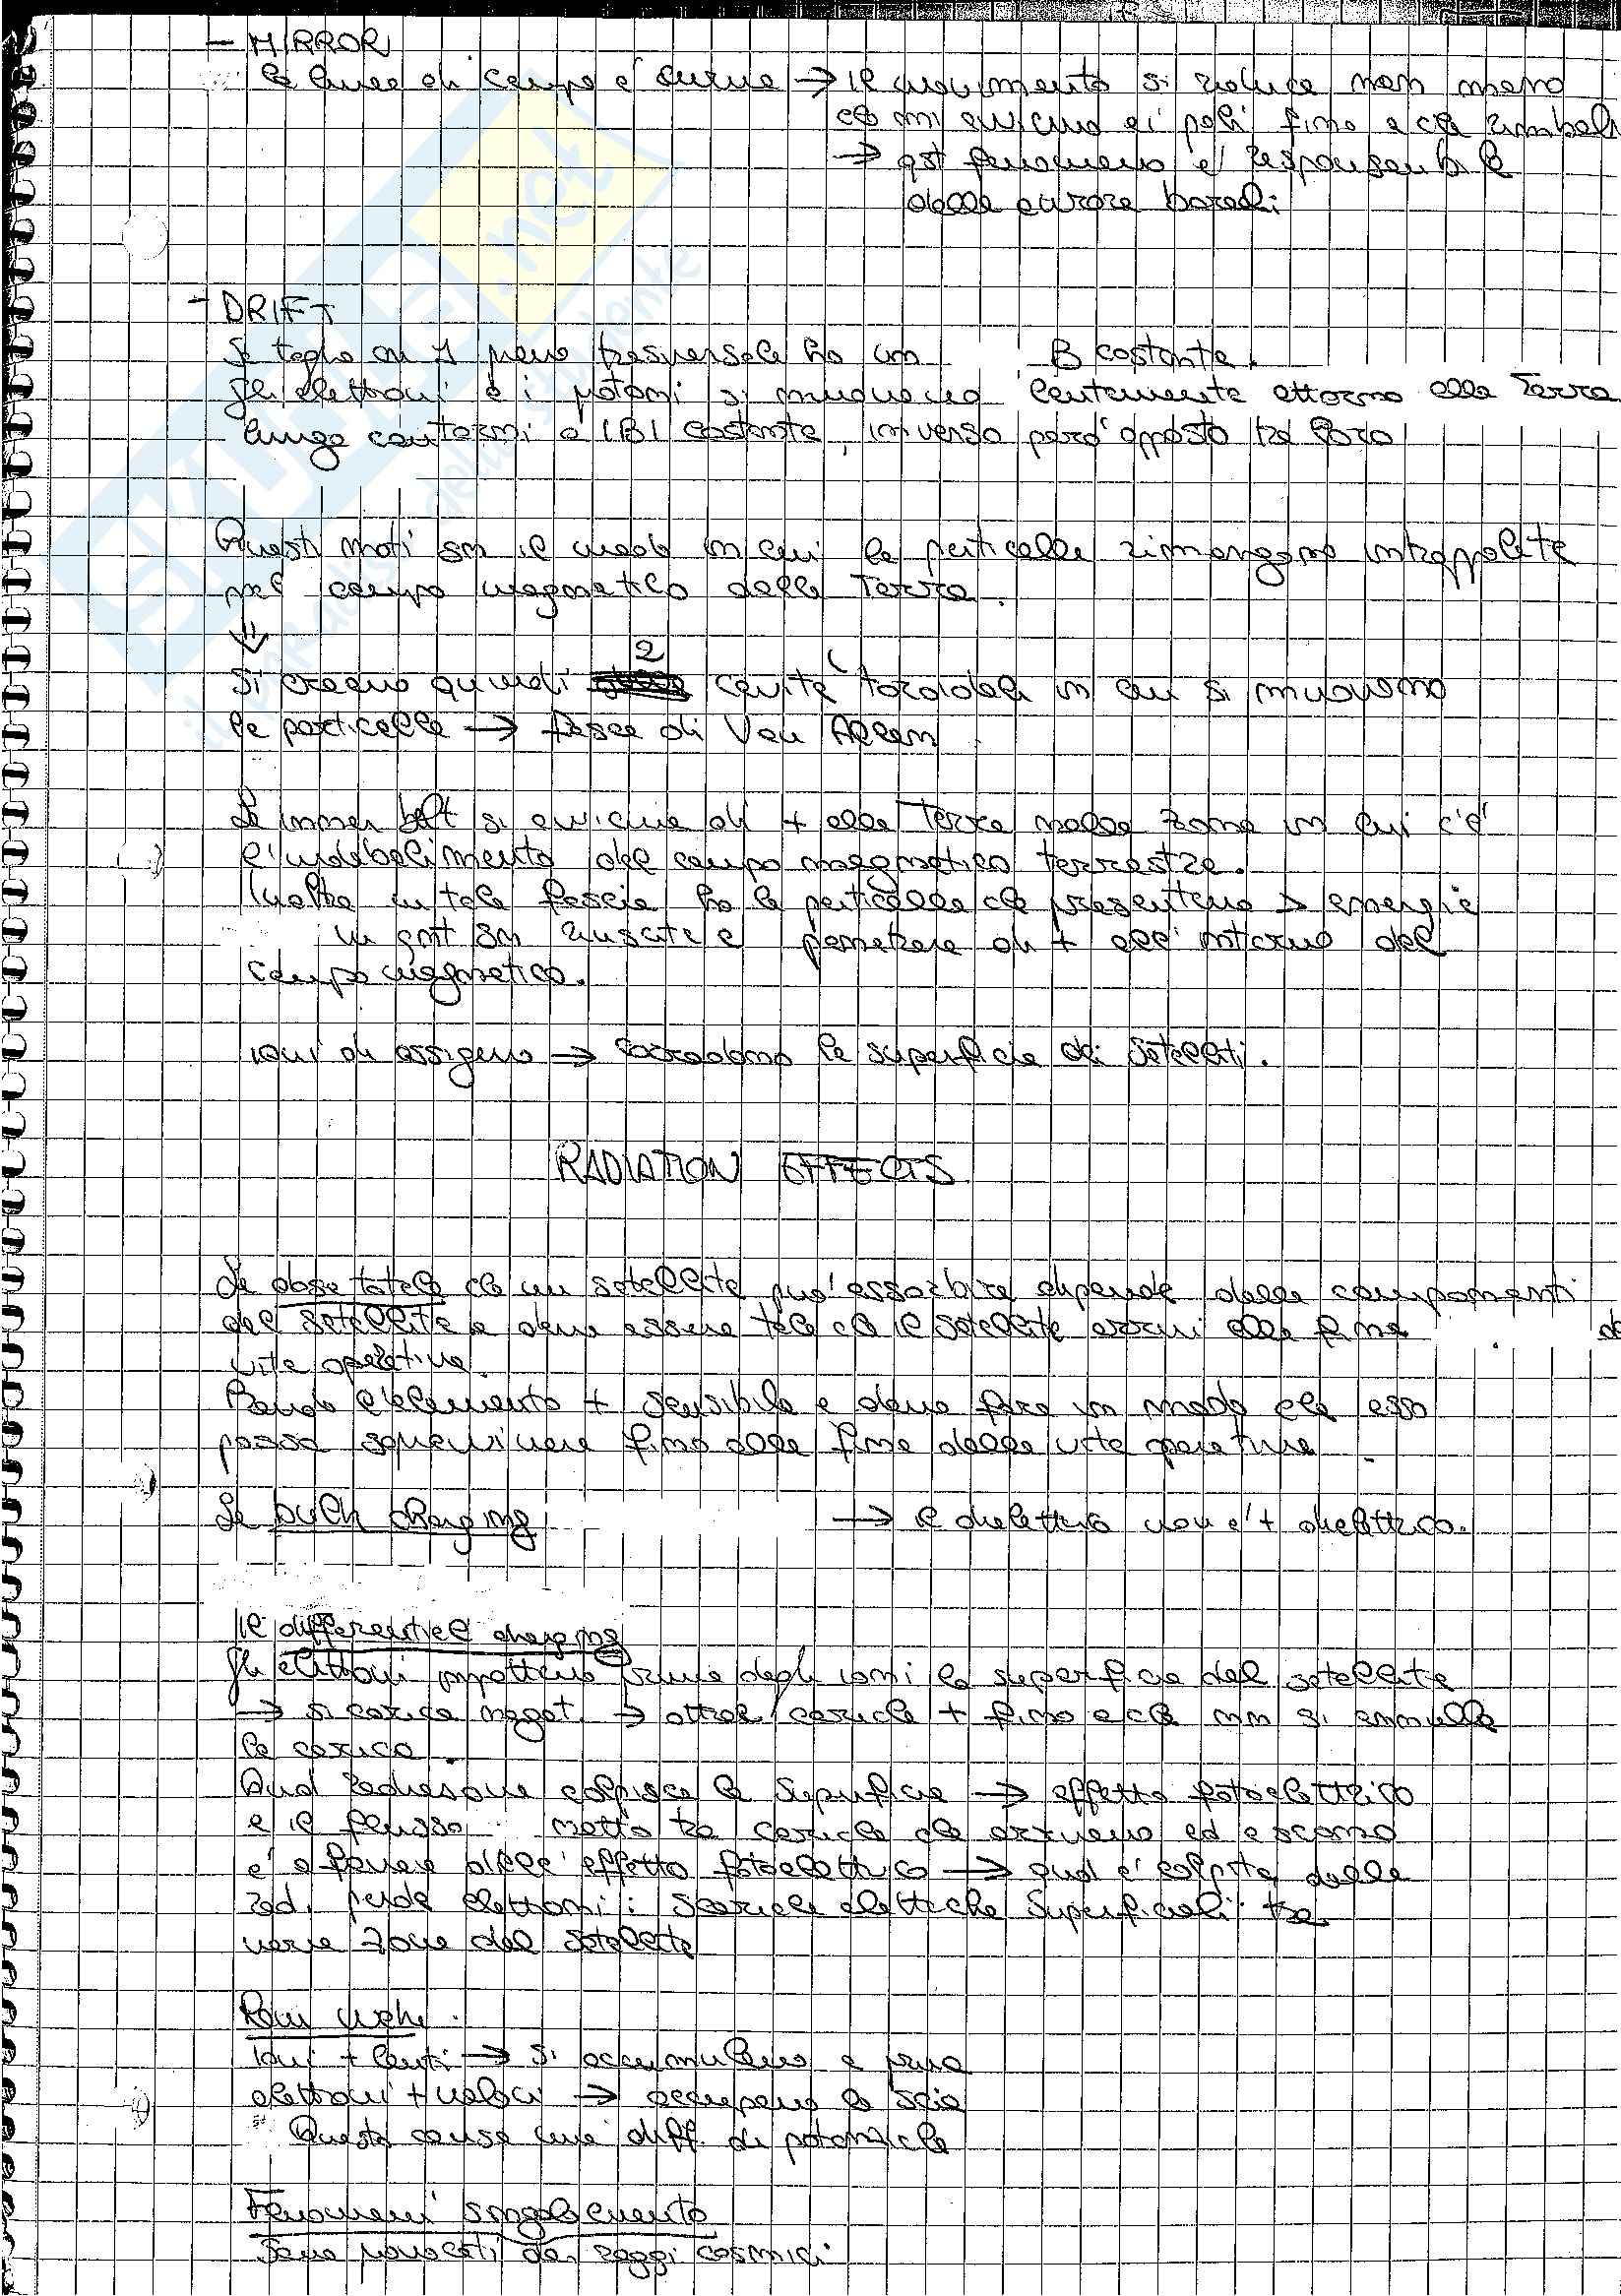 - MIRROR
le linee di campo è curva → il movimento si riduce man mano
che mi avvicino ai poli fino a che rimbalzi
→ qst fenomeno è responsabile
delle aurore boreali
- DRIFT
Se taglio in 1 piano trasversale ho un B costante.
Gli elettroni e i protoni si muovono lentamente attorno alla Terra
lungo contorni a |B| costante, in verso però opposto tra loro
Questi moti sn il modo in cui le particelle rimangono intrappolate
nel campo magnetico della Terra.
⇓
Si creano quindi 2 cavità toroidali in cui si muovono
le particelle → fasce di Van Allen.
La inner belt si avvicina di + alla Terra nella zona in cui c'è
l'indebolimento del campo magnetico terrestre.
Inoltre in tale fascia ho le particelle che presentano > energie
in qnt sn riuscite a penetrare di + all'interno del
campo magnetico.
ioni di ossigeno → corrodono le superficie dei satelliti.
RADIATION EFFECTS
La dose totale che un satellite può assorbire dipende dalle componenti
del satellite e deve essere tale che il satellite arrivi alla fine de
vita operativa.
Prendo l'elemento + sensibile e devo fare in modo che esso
possa sopravvivere fino alla fine della vita operativa
Le bulk charging → il dielettrico non è + dielettrico.
Il differential charging
Gli elettroni impattano prima degli ioni la superficie del satellite
→ si carica negat. → attrae cariche + fino a che nn si annulla
la carica.
Qnd radiazione colpisce la superficie → effetto fotoelettrico
e il flusso netto tra cariche che arrivano ed escono
è a favore dell'effetto fotoelettrico → qnd è colpita dalle
rad. perde elettroni: scariche elettriche superficiali tra
varie zone del satellite
Ram wake.
ioni + lenti → si accumulano a prua
elettroni + veloci → occupano la scia
Questo causa una diff. di potenziale
Fenomeni singolo evento
Sono provocati dai raggi cosmici